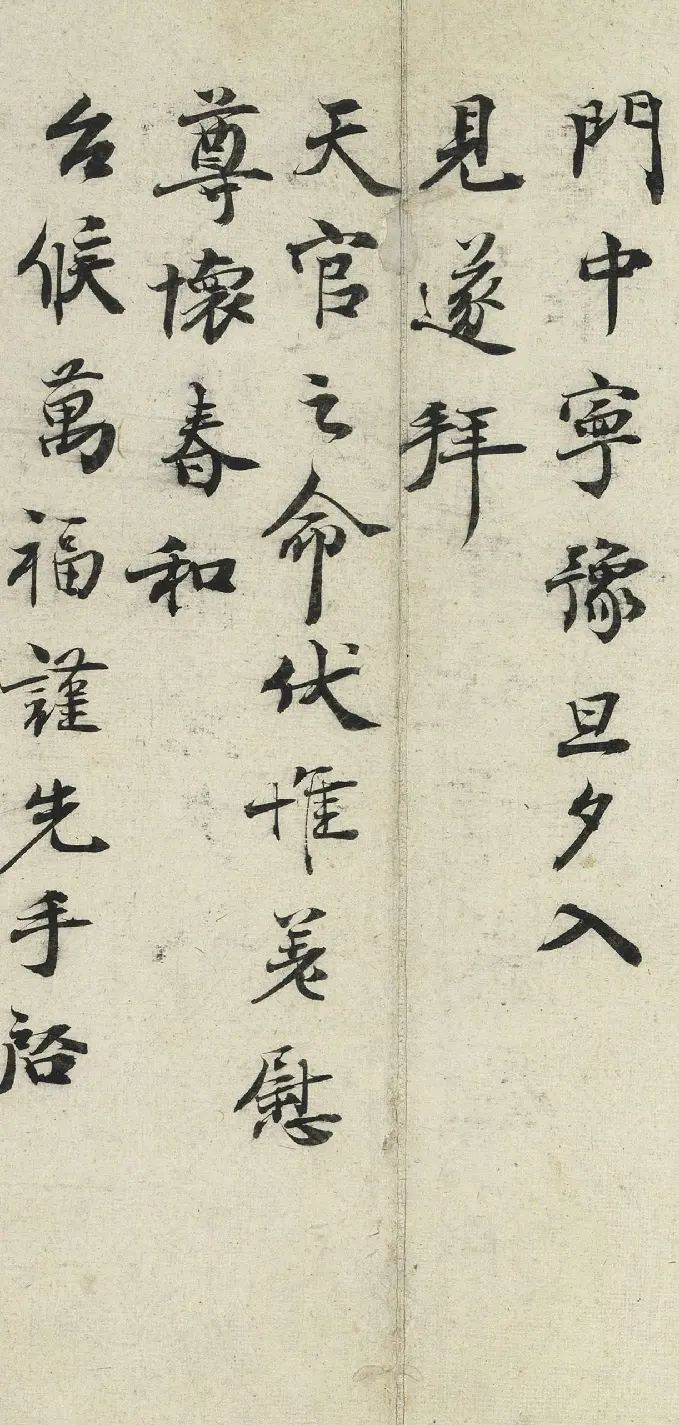 門中寧豫旦夕入
見遂拜
天官之命伏惟差慰
尊懷春和
台候萬福謹先手啓